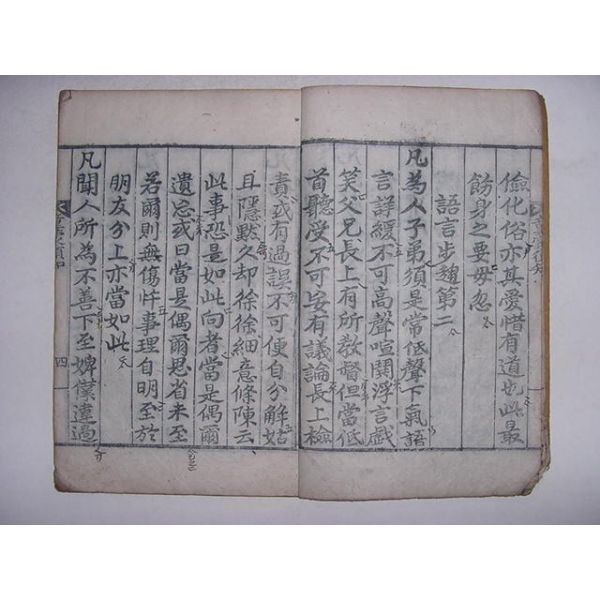 儉化俗亦其愛惜有道也此最
飭身之要毋忽
語言步趨第二
凡為人子弟須是常低聲下氣語
言詳緩不可高聲喧鬨浮言戲
笑父兄長上有所教督但當低
首聽受不可妄有議論長上檢
責或有過誤不可便自分解姑
且隱默久却徐徐細意條陳云
此事恐是如此向者當是偶爾
遺忘或曰當是偶爾思省未至
若爾則無傷忤事理自明至於
朋友分上亦當如此
凡聞人所為不善下至婢僕違過
四